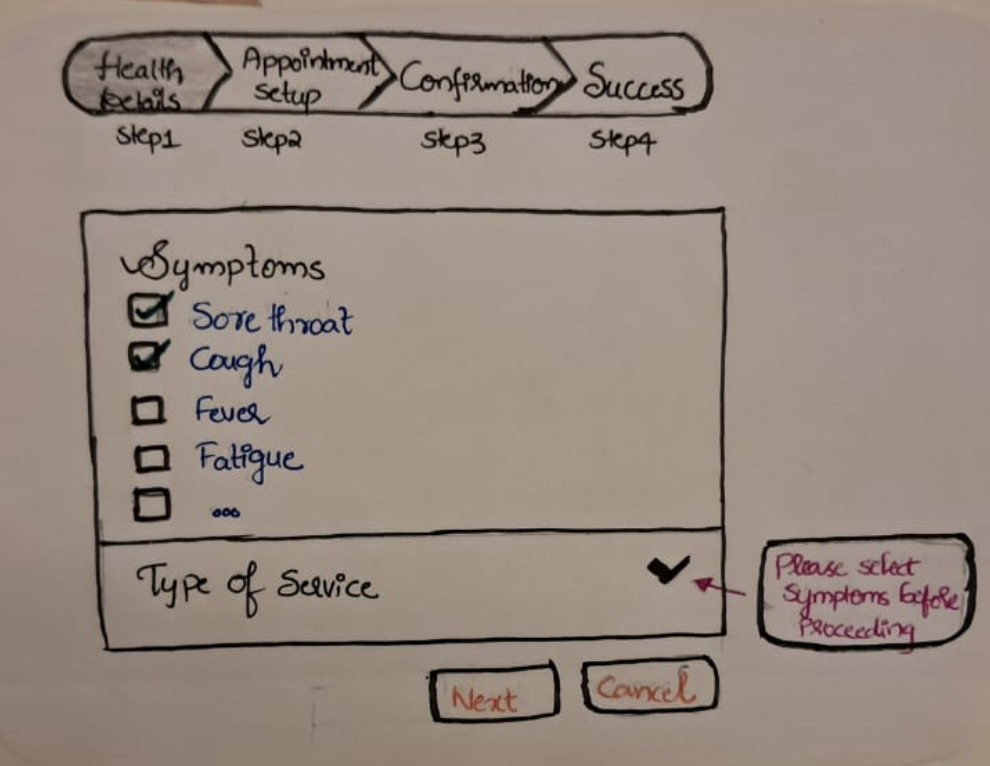 Health
Details
Appointment
setup
Confirmation
Success
Step1
Step2
Step3
Step4
Symptoms
Sore throat
Cough
Fever
Fatigue
...
Type of Service
Please select
Symptoms before
Proceeding
Next
Cancel